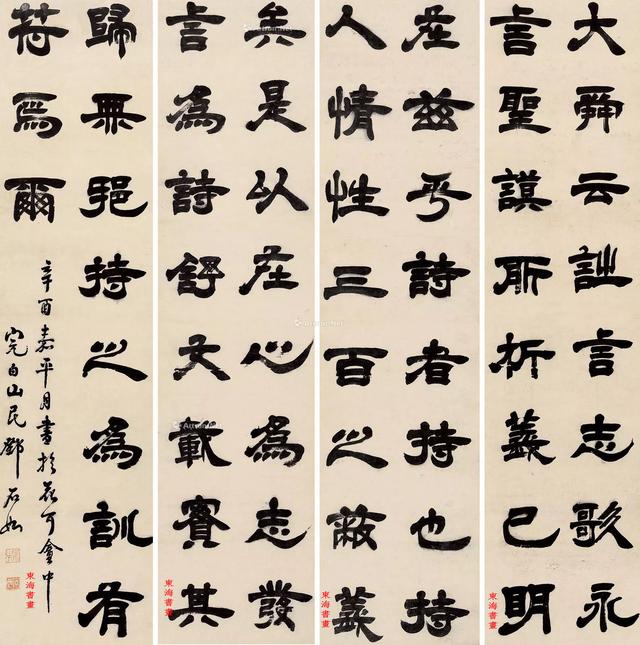 大舜云詩言志歌永
言聖謨所析義已明
在兹乎詩者持也持
人情性三百之蔽義
矣是以在心為志發
言為詩舒文載實其
歸無邪持之為訓有
符焉爾
辛酉嘉平月書於可盦中
完白山民鄧石如
東海書畫
東海書畫
東海書畫
東海書畫